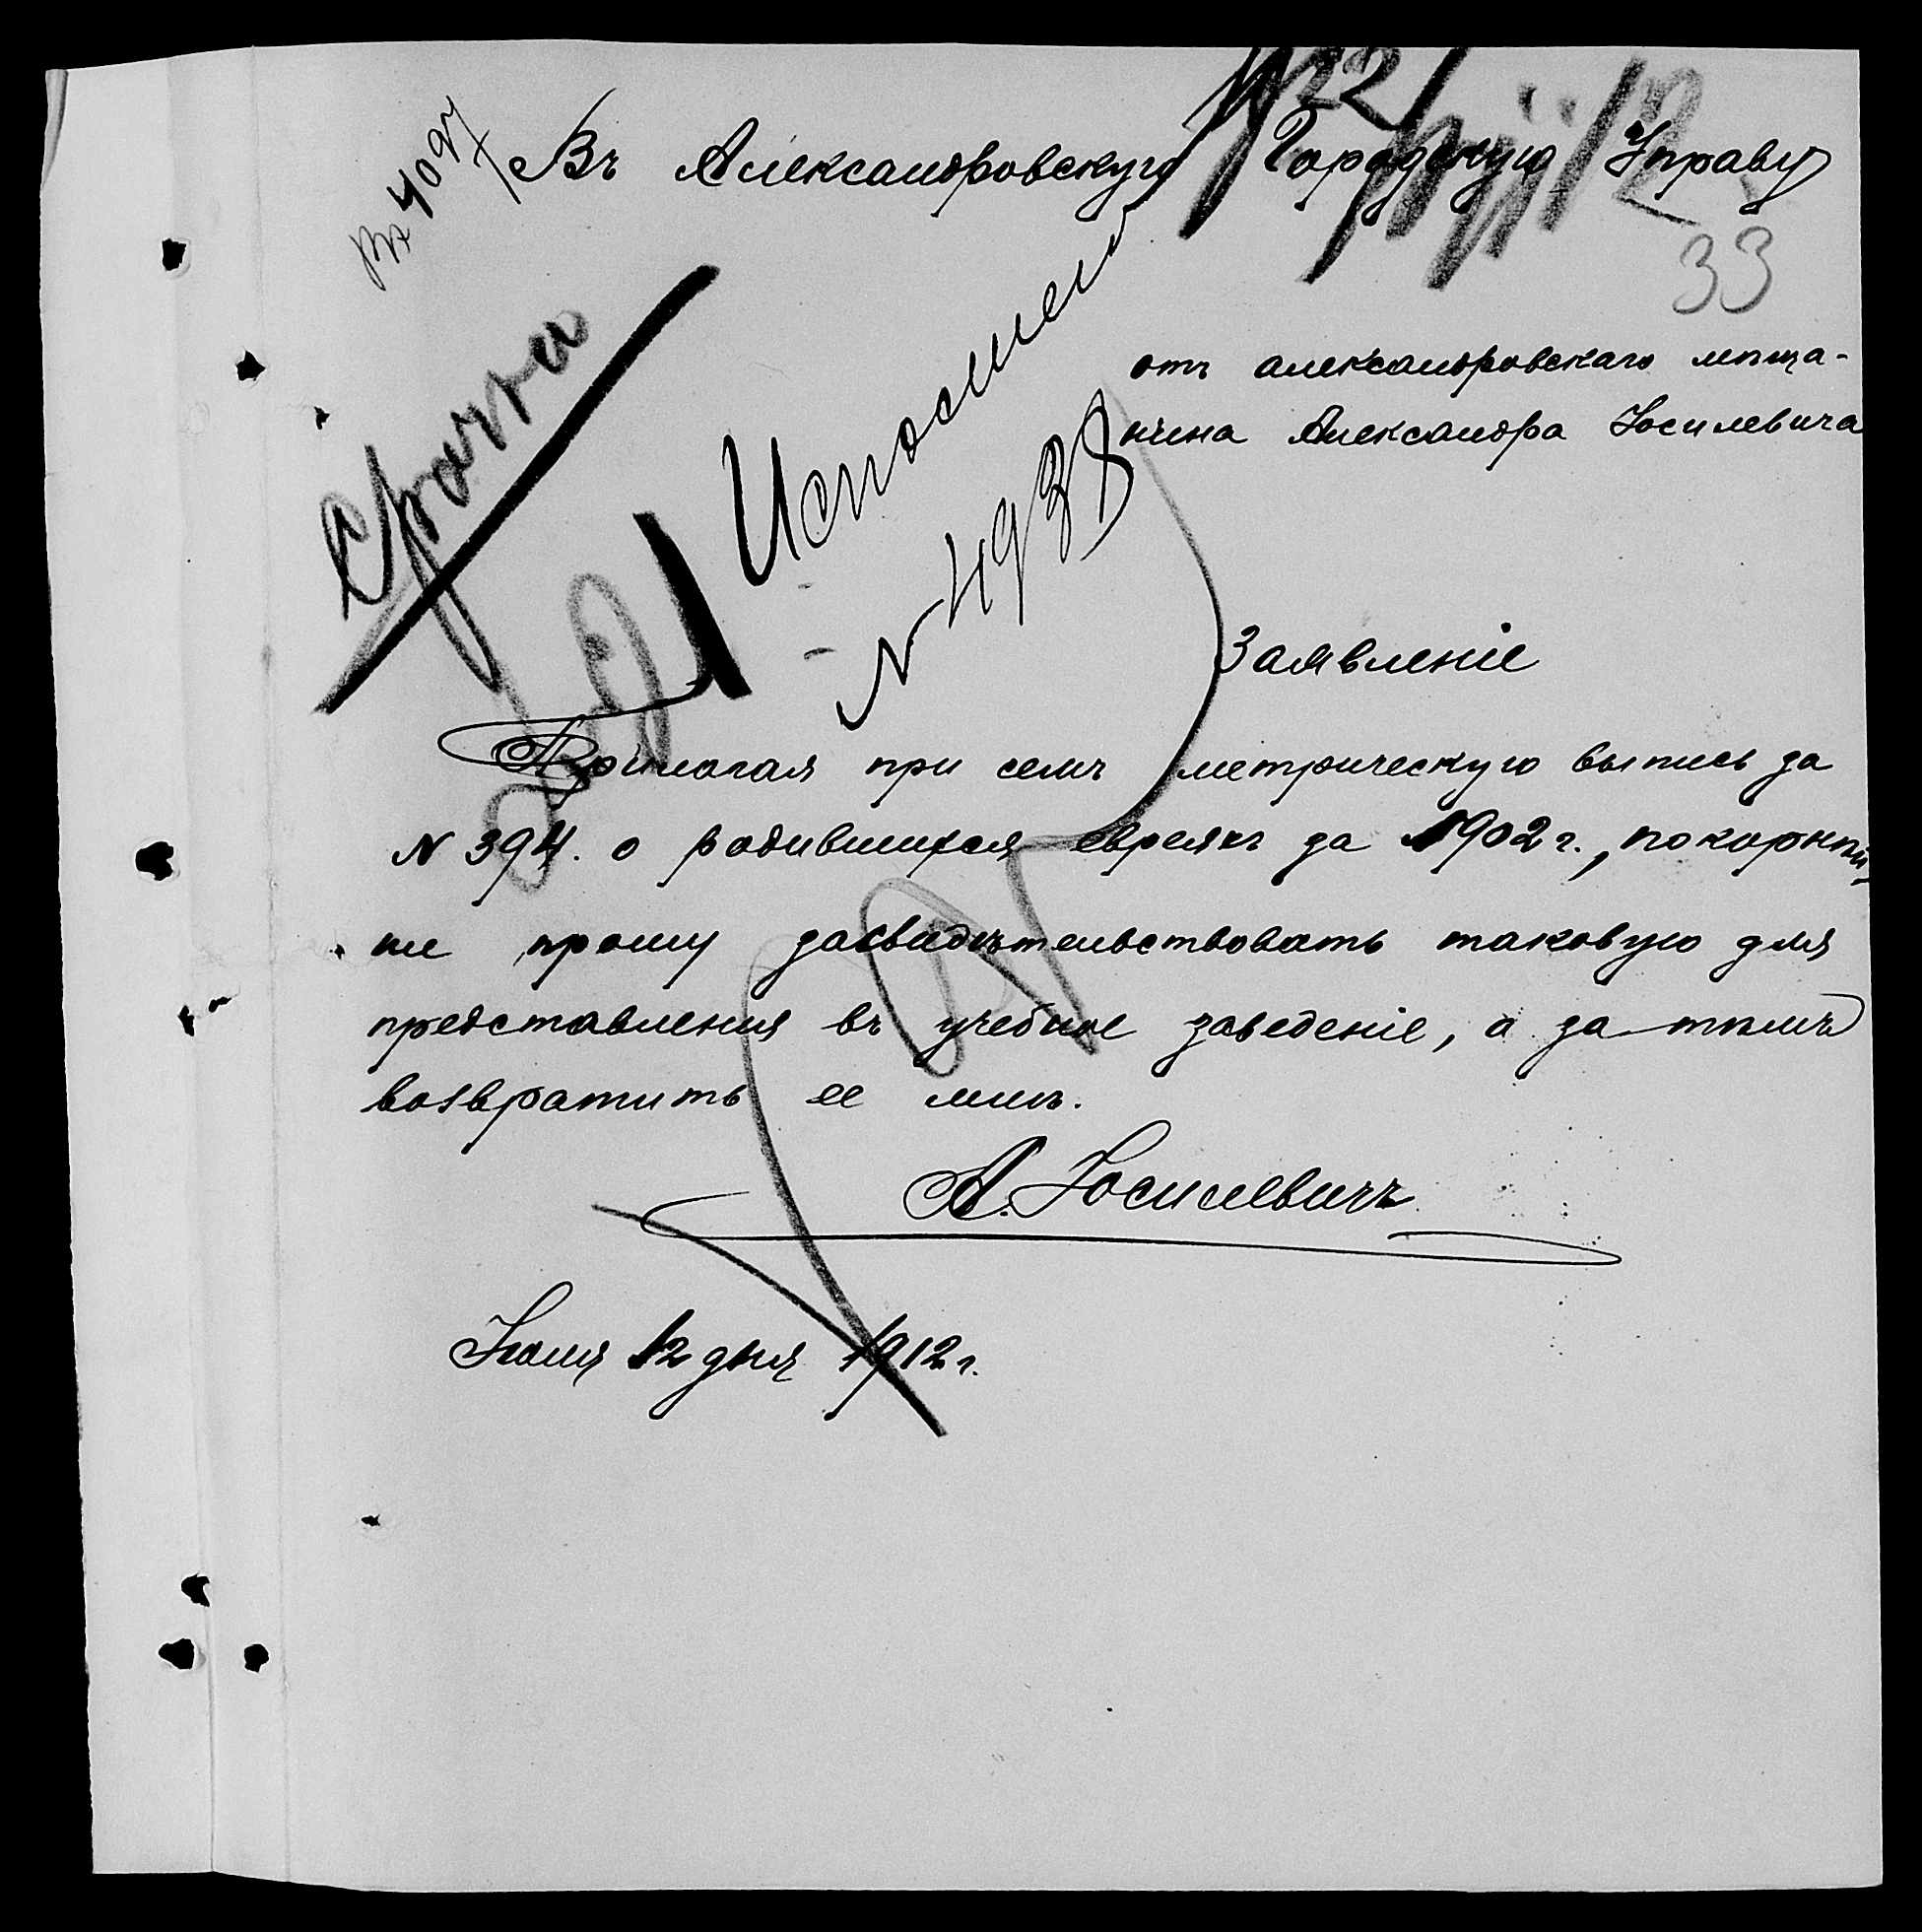 Вх 4097
Въ Александровскую Городскую Управу
33
Срочно
Исполнено
N 4938
отъ александровскаго мѣща-
нина Александра Іосилевича
Заявленіе
Прилагая при семъ метрическую выпись за
N 394. о родившихся евреяхъ за 1902 г., покорнѣй-
ше прошу засвидѣтельствовать таковую для
представления въ учебное заведеніе, а за тѣмъ
возвратить ее мнѣ.
А. Іосилевичъ
Іюля 12 дня 1912 г.